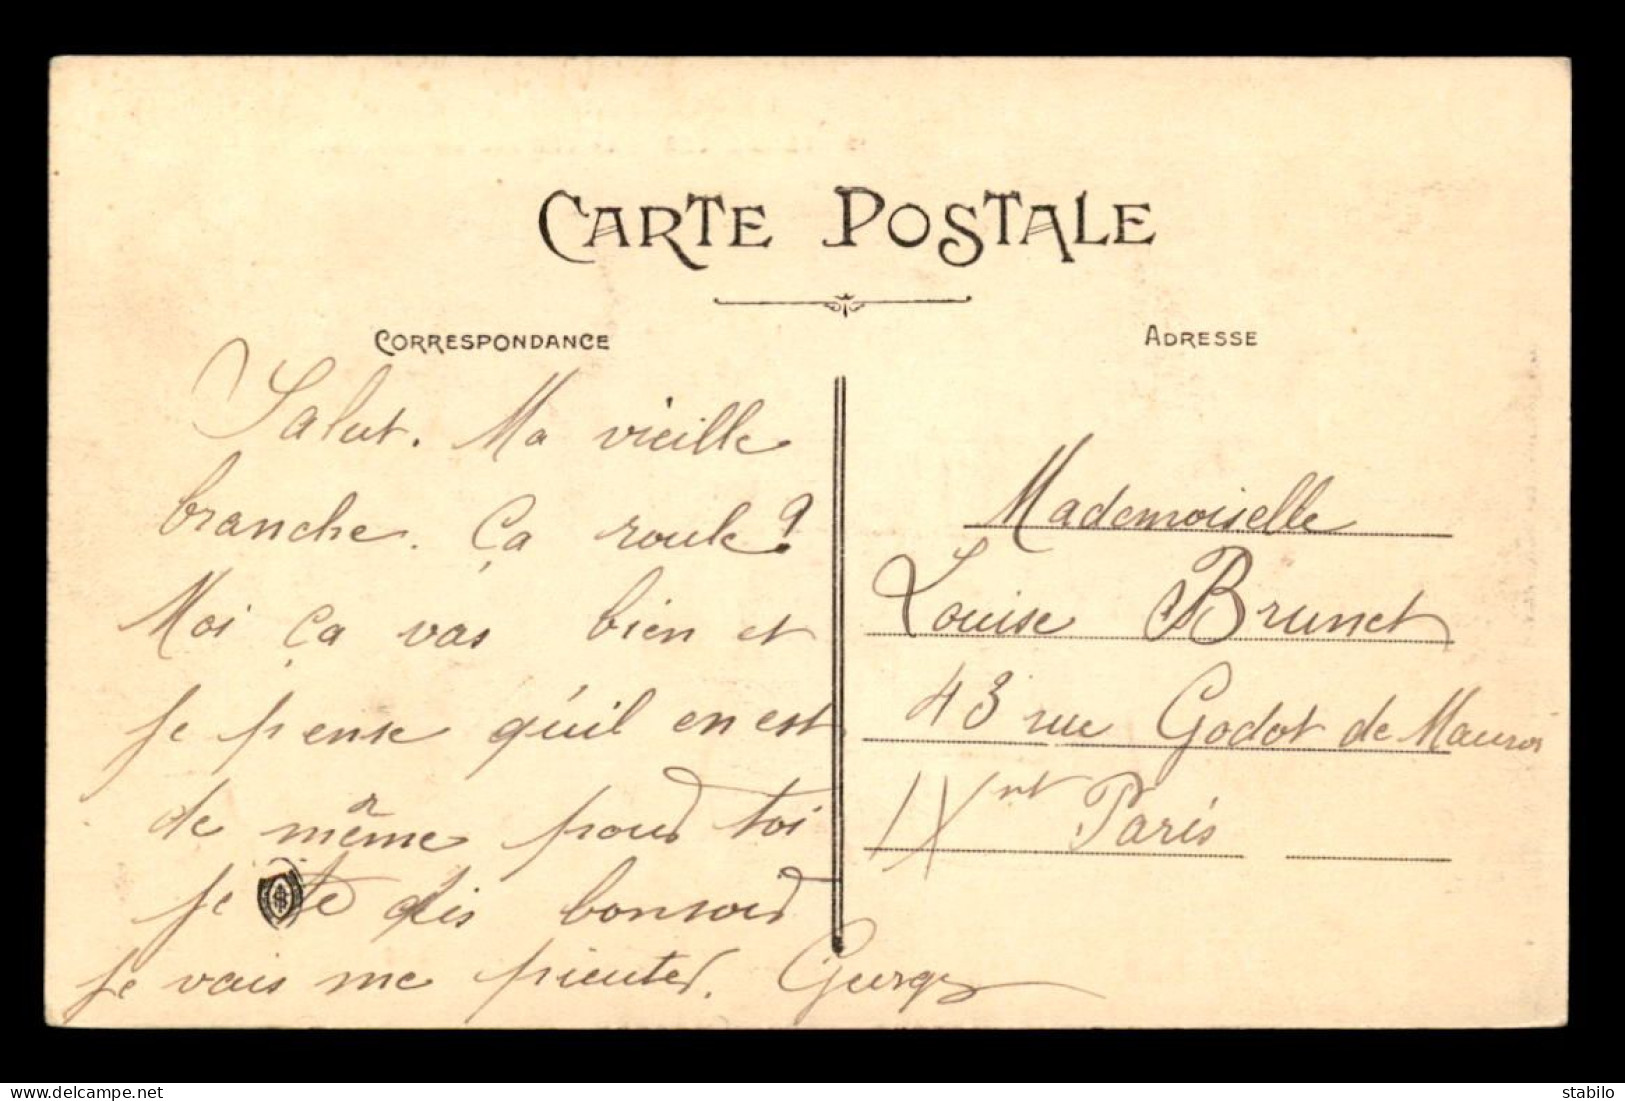 CARTE POSTALE
CORRESPONDANCE
Salut. Ma vieille
branche. Ça roule?
Moi ça vas bien et
je pense qu'il en est
de même pour toi
je te dis bonsoir
je vais me pieuter. Georges
ADRESSE
Mademoiselle
Louise Brunet
43 rue Godot de Mauroi
IXme Paris
the best of collections
stabilo